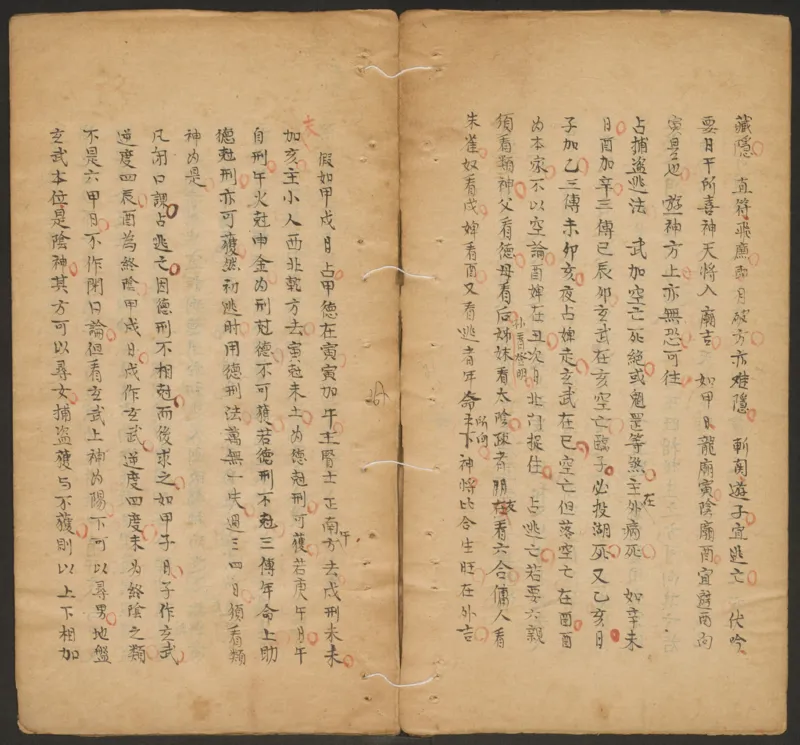 藏隱 直符飛廉即月破方亦难隱 斬關遊子宜逃亡 伏吟
要日干所喜神天將入廟吉 如甲日龍廟寅陰廟酉宜避西向
寅是也 遊神方上亦無恐可往
占捕盜逃法 武加空亡死絕或魁罡等煞主外病死 如辛未
日酉加辛三傳巳辰卯玄武在亥空亡臨子必投湖死 又乙亥日
子加乙三傳未卯亥夜占婢走玄武在巳空亡但落空亡在酉酉
为本家不以空論酉婢在丑次月北门捉住 占逃亡若要六親
須看類神父看德母看后姊妹看太陰 朋友看六合傭人看
朱雀奴看戌婢看酉又看逃者年命所向上下神將比合生旺在外吉
假如甲戌日占甲德在寅寅加午主賢士正南方去戌刑未未
加亥主小人西北乾方去寅尅未土为德尅刑可獲若庚午日午
自刑午火尅申金为刑尅德不可獲若德刑不尅三傳年命上助
德尅刑亦可獲然初逃时用德刑法萬無一失過三四日須看類
神为是
凡闭口課占逃亡因德刑不相尅而後求之如甲子日子作玄武
逆度四辰酉為終陰甲戌日戌作玄武逆度四度未为終陰之類
不是六甲日不作閉口論但看玄武上神为陽下可以尋男地盤
玄武本位是陰神其方可以尋女捕盜獲与不獲則以上下相加